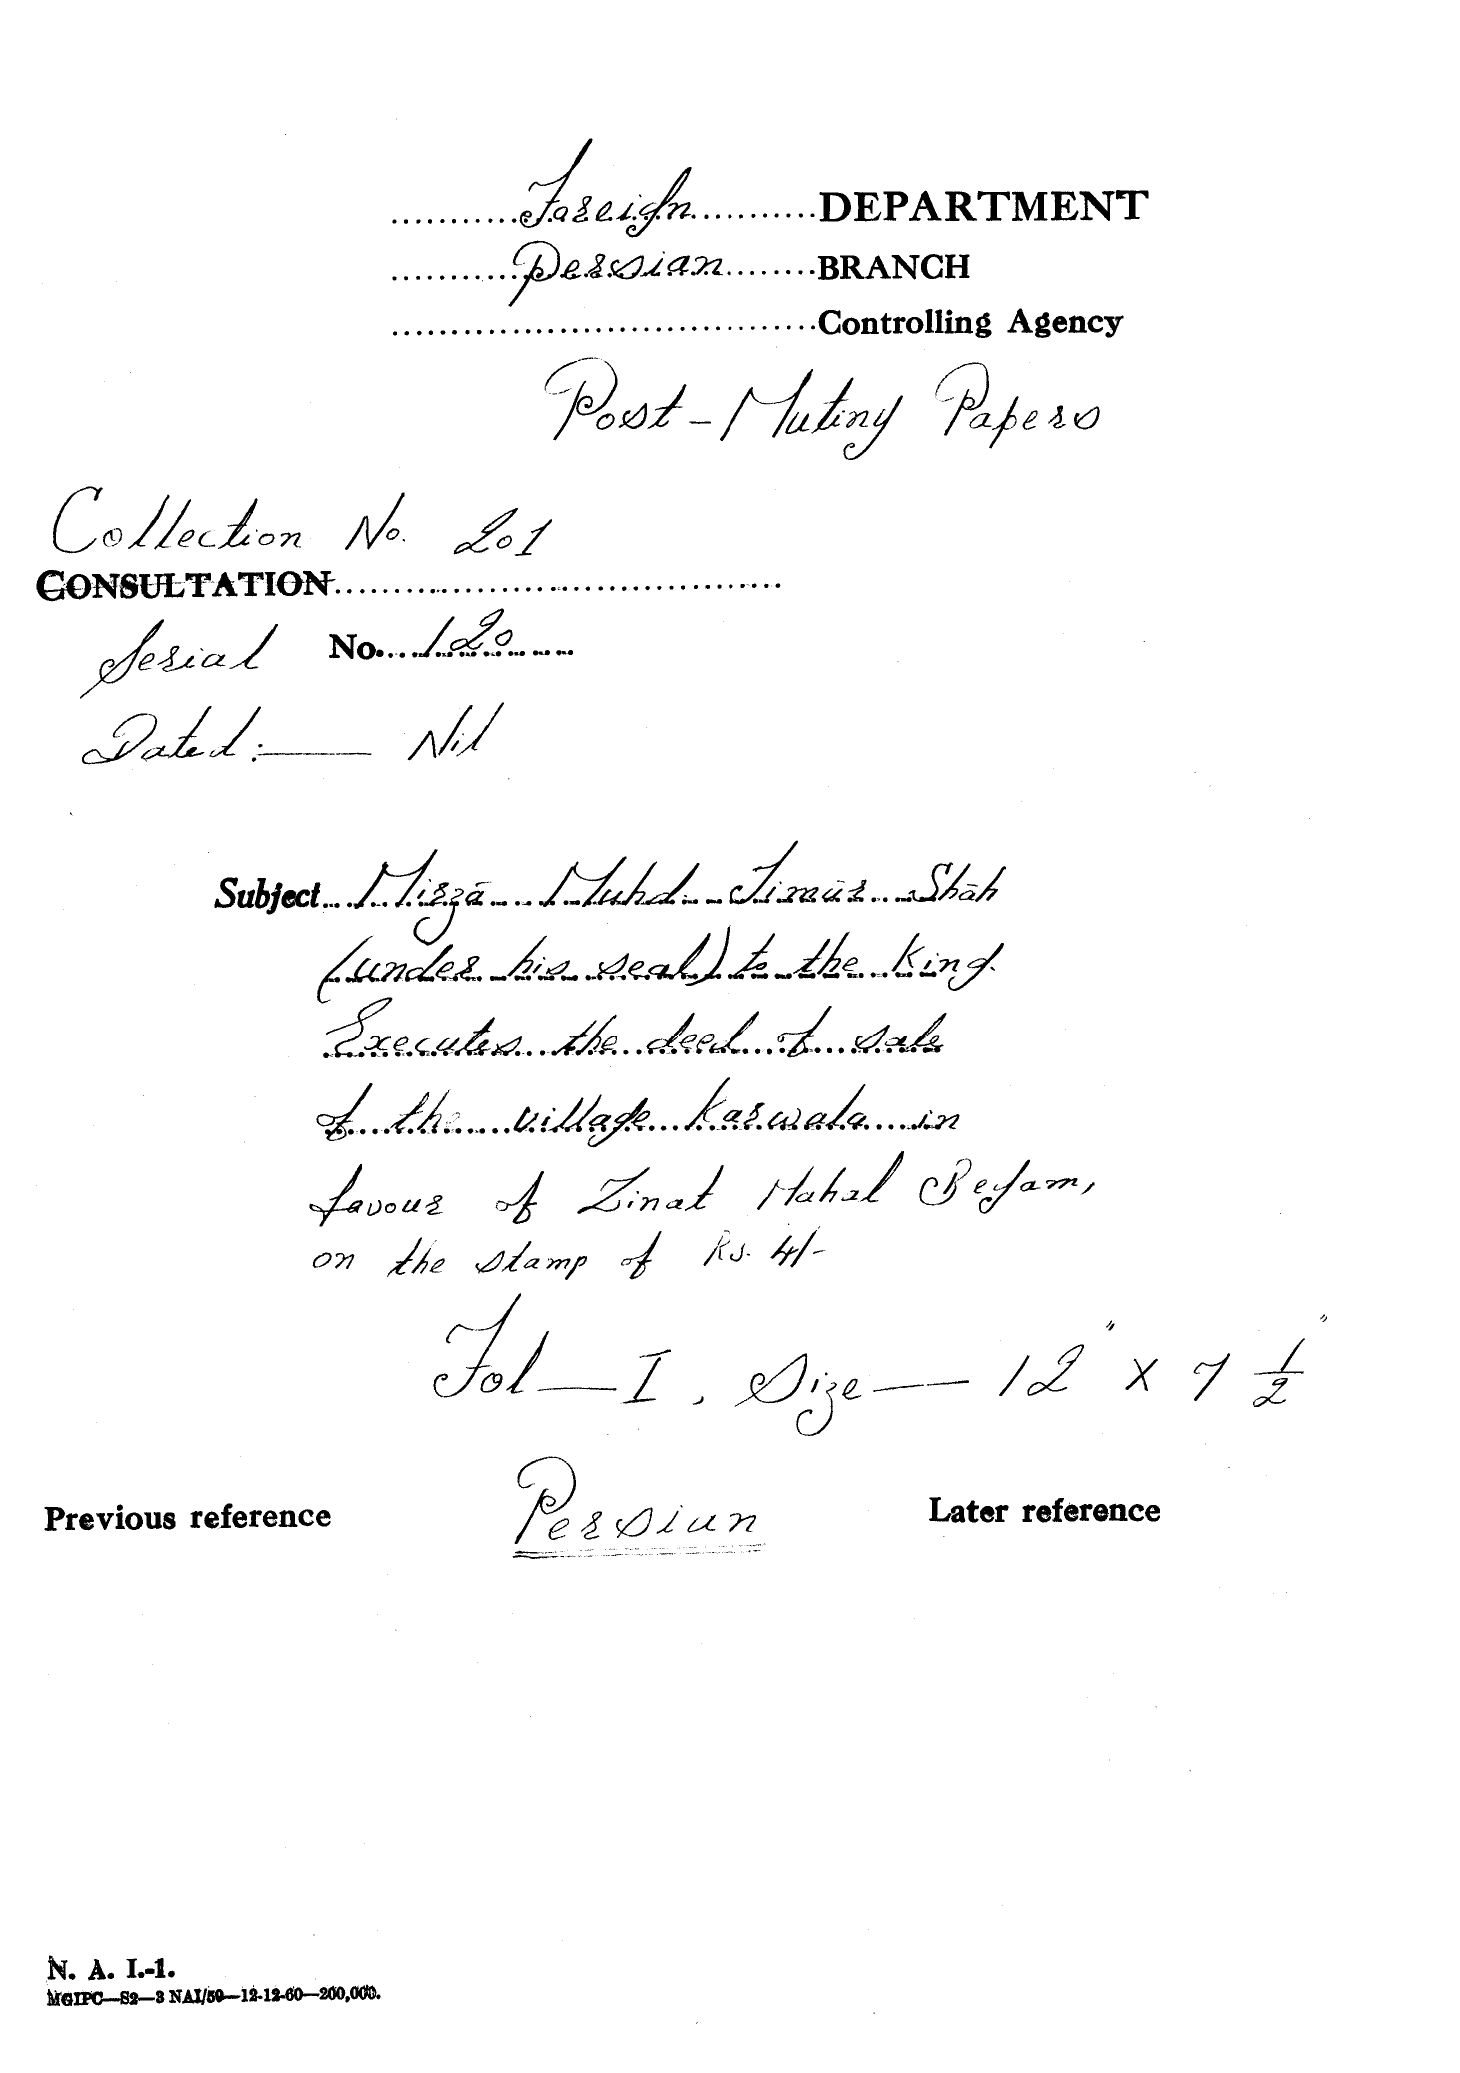 Foreign DEPARTMENT
Persian BRANCH
Controlling Agency
Post-Mutiny Papers
Collection No. 201
CONSULTATION
Serial No. 120
Dated:— Nil
Subject Mirzā Muhd Timūr Shāh
(under his seal) to the King.
Executes the deed of sale
of the village Karwala in
favour of Zinat Mahal Begam,
on the stamp of Rs. 4/-
Fol—I, Size—12" x 7 1/2"
Previous reference Persian Later reference
N. A. I.-1.
MGIPC—S2—3 NAI/59—12-12-60—200,000.